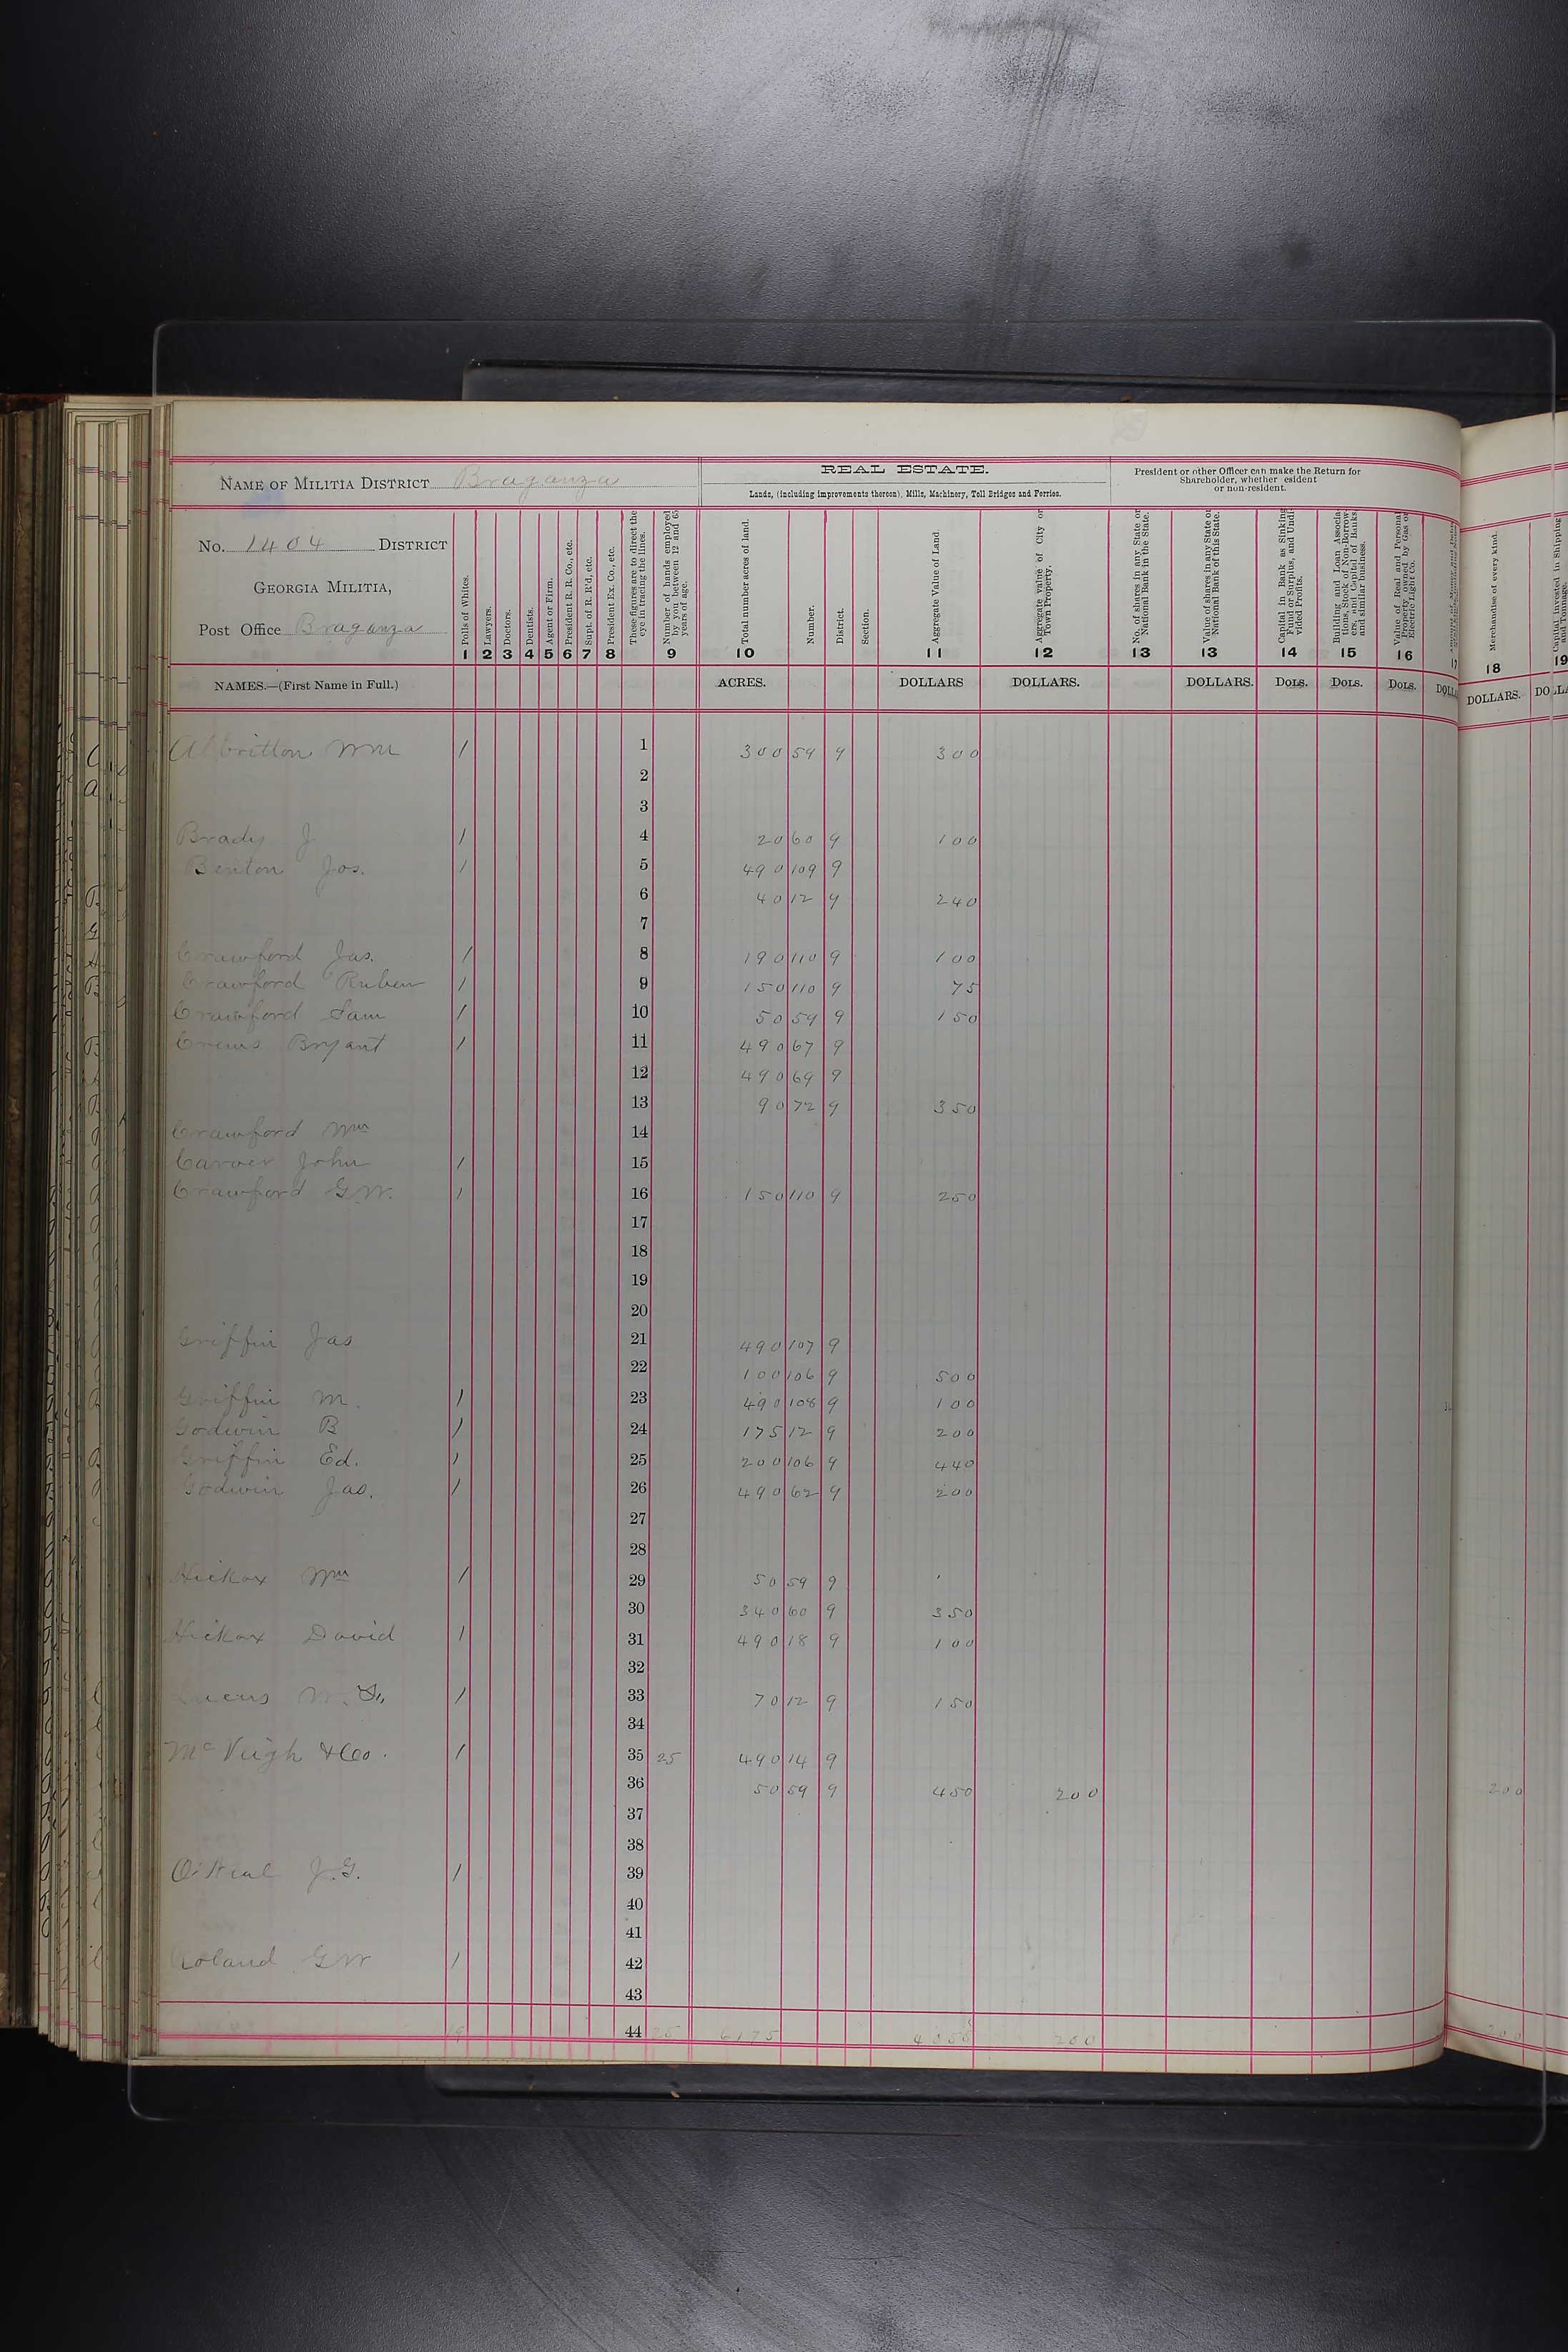 NAME OF MILITIA DISTRICT Braganza
REAL ESTATE.
Lands, (including improvements thereon), Mills, Machinery, Toll Bridges and Ferries.
President or other Officer can make the Return for
Shareholder, whether esident
or non-resident.
No. 1404 DISTRICT
GEORGIA MILITIA,
Post Office Braganza
Polls of Whites. 1
Lawyers. 2
Doctors. 3
Dentists. 4
Agent or Firm. 5
President R. R. Co., etc. 6
Supt. of R. R'd, etc. 7
President Ex. Co., etc. 8
These figures are to direct the eye in tracing the lines.
Number of hands employed by you between 12 and 65 years of age. 9
Total number acres of land. 10
Number.
District.
Section.
Aggregate Value of Land 11
Aggregate value of City or Town Property. 12
No. of shares in any State or National Bank in the State. 13
Value of shares in any State or National Bank of this State. 13
Capital in Bank as Sinking Fund or Surplus, and Undivided Profits. 14
Building and Loan Associations, Stock of Non-Borrowers, and Capital of Banks, and similar business. 15
Value of Real and Personal Property owned by Gas or Electric Light Co. 16
17
Merchandise of every kind. 18
Capital Invested in Shipping and Tonnage. 19
NAMES.—(First Name in Full.) ACRES. DOLLARS DOLLARS. DOLLARS. DOLS. DOLS. DOLS. DOLLA DOLLARS. DOLLA
Albritton Wm 1 1 300 59 9 300
2
3
Brady J 1 4 20 60 9 100
Benton Jos. 1 5 490 109 9
6 40 12 9 240
7
Crawford Jas. 1 8 190 110 9 100
Crawford Ruben 1 9 150 110 9 75
Crawford Sam 1 10 50 59 9 150
Crews Bryant 1 11 490 67 9
12 490 69 9
13 90 72 9 350
Crawford Wm 14
Carver John 1 15
Crawford G.W. 1 16 150 110 9 250
17
18
19
20
Griffin Jas 21 490 107 9
22 100 106 9 500
Griffin M. 1 23 490 108 9 100
Godwin B 1 24 175 12 9 200
Griffin Ed. 1 25 200 106 9 440
Godwin Jas. 1 26 490 62 9 200
27
28
Hickox Wm 1 29 50 59 9
30 340 60 9 350
Hickox David 1 31 490 18 9 100
32
Lucus W. 1 33 70 12 9 150
34
McVeigh & Co. 1 35 25 490 14 9
36 50 59 9 450 200 200
37
38
O'Neal J.G. 1 39
40
41
Roland GW 1 42
43
19 44 25 6175 200 200